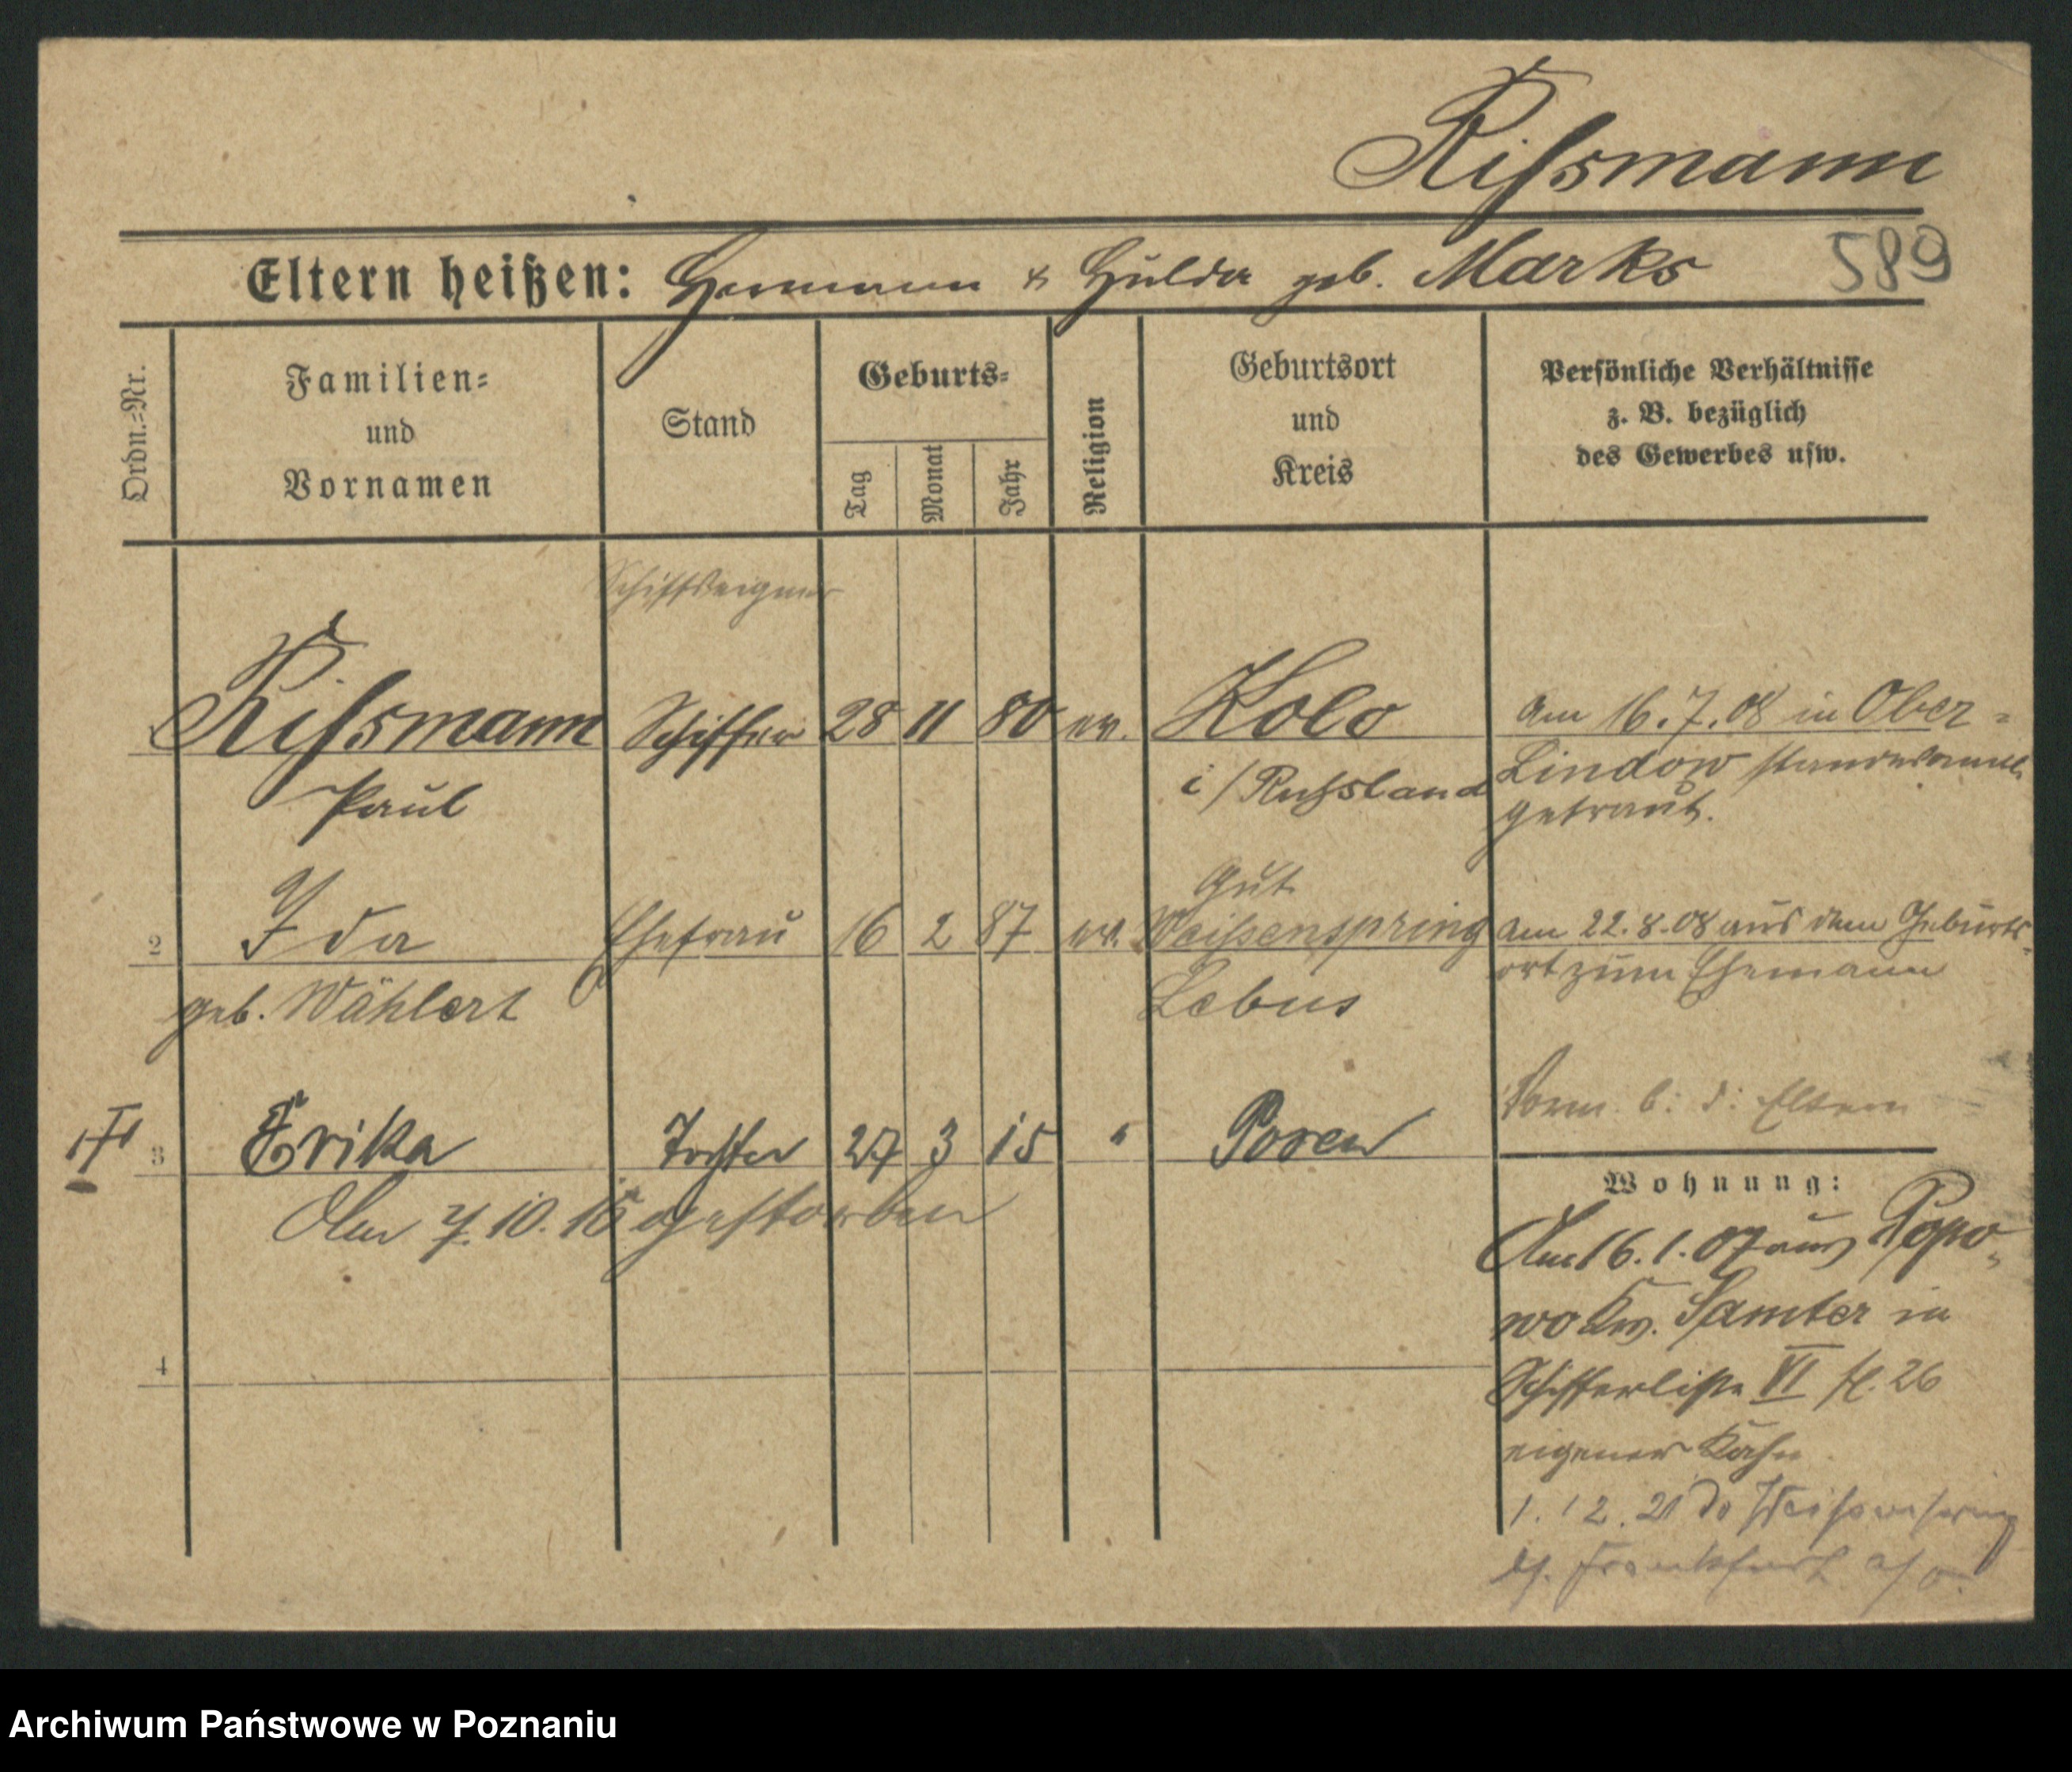 Rißmann
Eltern heißen: Hermann & Hulda geb. Marks 589
Ordn.=Nr.
Familien= und Vornamen
Stand
Geburts=
Tag Monat Jahr
Religion
Geburtsort und Kreis
Persönliche Verhältnisse
z. B. bezüglich
des Gewerbes usw.
Schiffseigner
Rißmann Schiffer 28 11 80 ev. Kolo
Paul i/Rußland
am 16.7.08 in Ober=
Lindow standesamtl.
getraut.
Gut
2 Ida Ehefrau 16 2 87 ev. Weißenspring
geb. Wählert Lebus
am 22.8.08 aus dem Geburts=
ort zum Ehemann
b. d. Eltern
3 Erika Tochter 27 3 15 " Posen
Am 7.10.15 gestorben
4
Wohnung:
Am 16.1.07 aus Popo=
wo Krs. Samter in
Schifferliste VI 26
eigener Kahn
1.12.21 Weißenspring
Frankfurt a/O.
Archiwum Państwowe w Poznaniu